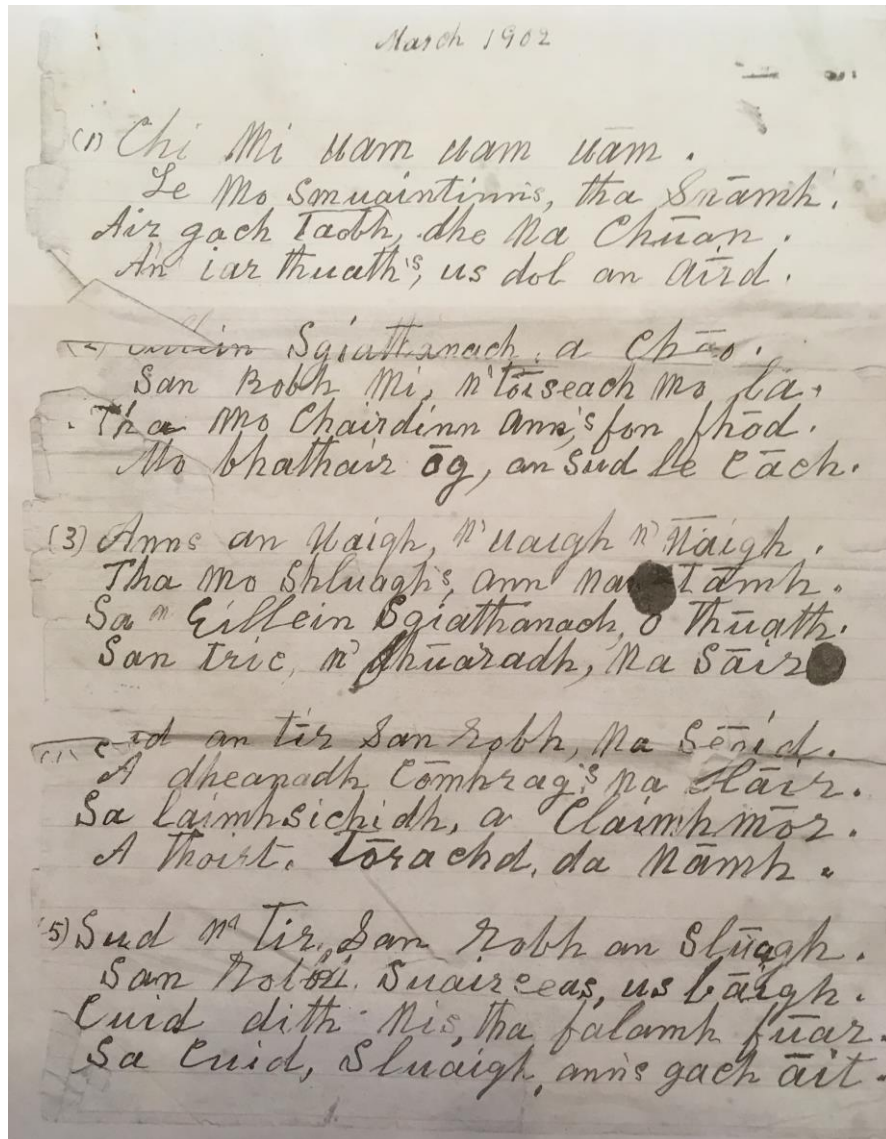 March 1902
(1) Chi Mi uam uam uām.
Le Mo Smuaintinn's, tha Snāmh.
Air gach Taobh, dhe Na Chūan.
An iar thuath's, us dol an āird.
Sgiathanach, a Chēo.
San Robh Mi, n'tōiseach mo lā.
Tha Mo Chairdinn Ann's fon fhōd.
Mo bhathair ōg, an Sud le Cāch.
(3) Anns an Uaigh, n'uaigh n'Uaigh.
Tha Mo Shluagh's, ann Na Tāmh.
Sa n Eillein Sgiathanach, o Thūath.
San Tric, n' fhūaradh, Na Sāir
an tir San robh, Na Sēoid.
A dheanadh Cōmhrag's na blāir.
Sa laimhsichidh, a Claimhmōr.
A Thoirt. Tōrachd, da Nāmh.
(5) Sud n' Tir, San robh an Slūagh.
San Robh. Suairceas, us bāigh.
Cuid dith Nis, tha falamh fūar.
Sa Cuid, Sluaigh, ann's gach āit.